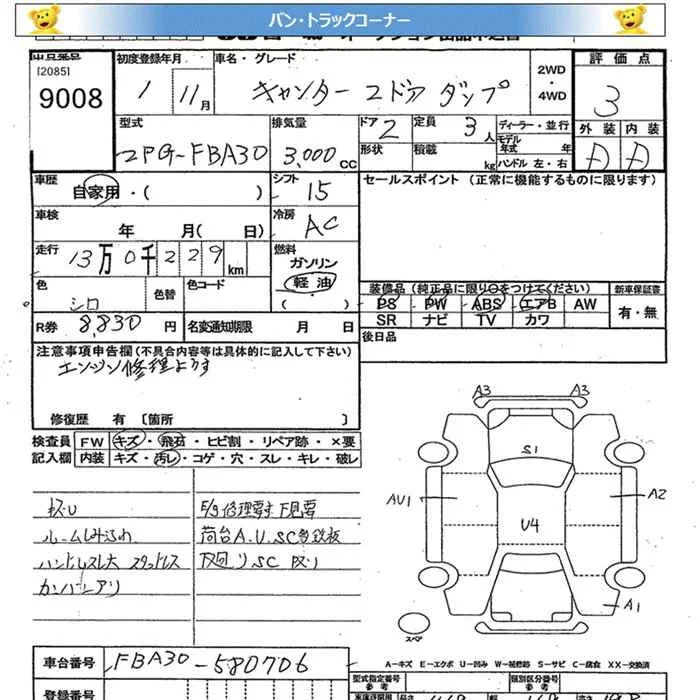 バン・トラックコーナー
出品番号
[2085]
9008
初度登録年月
1 11月
車名・グレード
キャンター 2ドア ダンプ
2WD
・
4WD
評価点
3
外装 内装
D D
型式
2PG-FBA30
排気量
3,000cc
ドア 2
定員 3人
ディーラー・並行
モデル年式 年
形状
積載 kg
ハンドル 左・右
車歴
自家用・( )
シフト 15
セールスポイント (正常に機能するものに限ります)
車検
年 月( 日)
冷房 AC
走行
13万0千229km
燃料
ガソリン
軽油
( )
色
シロ
色替
色コード
装備品 (純正品に限り○をつけてください)
新車保証書
PS PW ABS エアB AW
有・無
SR ナビ TV カワ
R券 8,830円
名変通知期限 月 日
後日品
注意事項申告欄 (不具合内容等は具体的に記入して下さい)
エンジン修理ようす
修復歴 有 [箇所 ]
検査員 FW キズ・飛石・ヒビ割・リペア跡・×要
記入欄 内装 キズ・汚レ・コゲ・穴・スレ・キレ・破レ
E/G修理要す 下見要
荷台A.U.SC
スタッドレス
A3 A3
S1
AU1
A2
U4
A1
スペア
車台番号 FBA30-580706
A-キズ E-エクボ U-凹み W-補修跡 S-サビ C-腐食 XX-交換済
登録番号
型式指定番号
参考
類別区分番号
参考